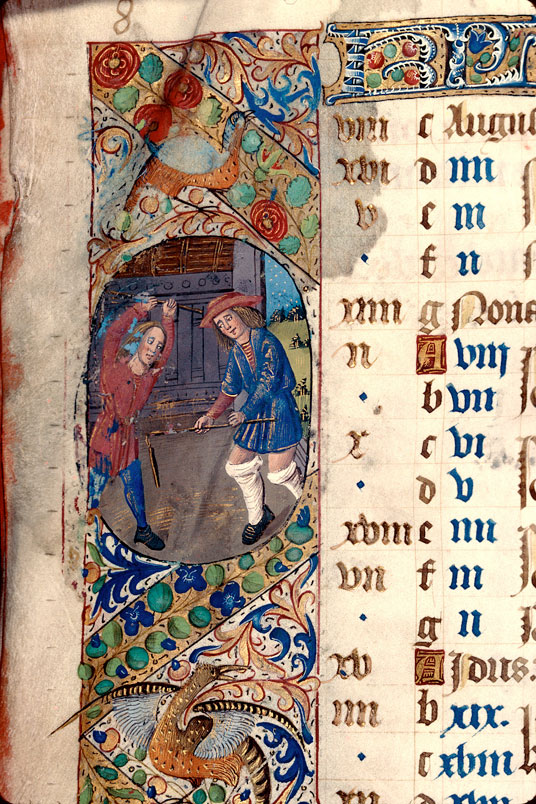 8
KL
viii c Augus
xvi d iiii
v e iii
· f ii
xiiii g Nonas
ii A viii
· b vii
x c vi
· d v
xviii e iiii
vii f iii
· g ii
xv A Idus
iiii b xix.
· c xviii
xii d xvii